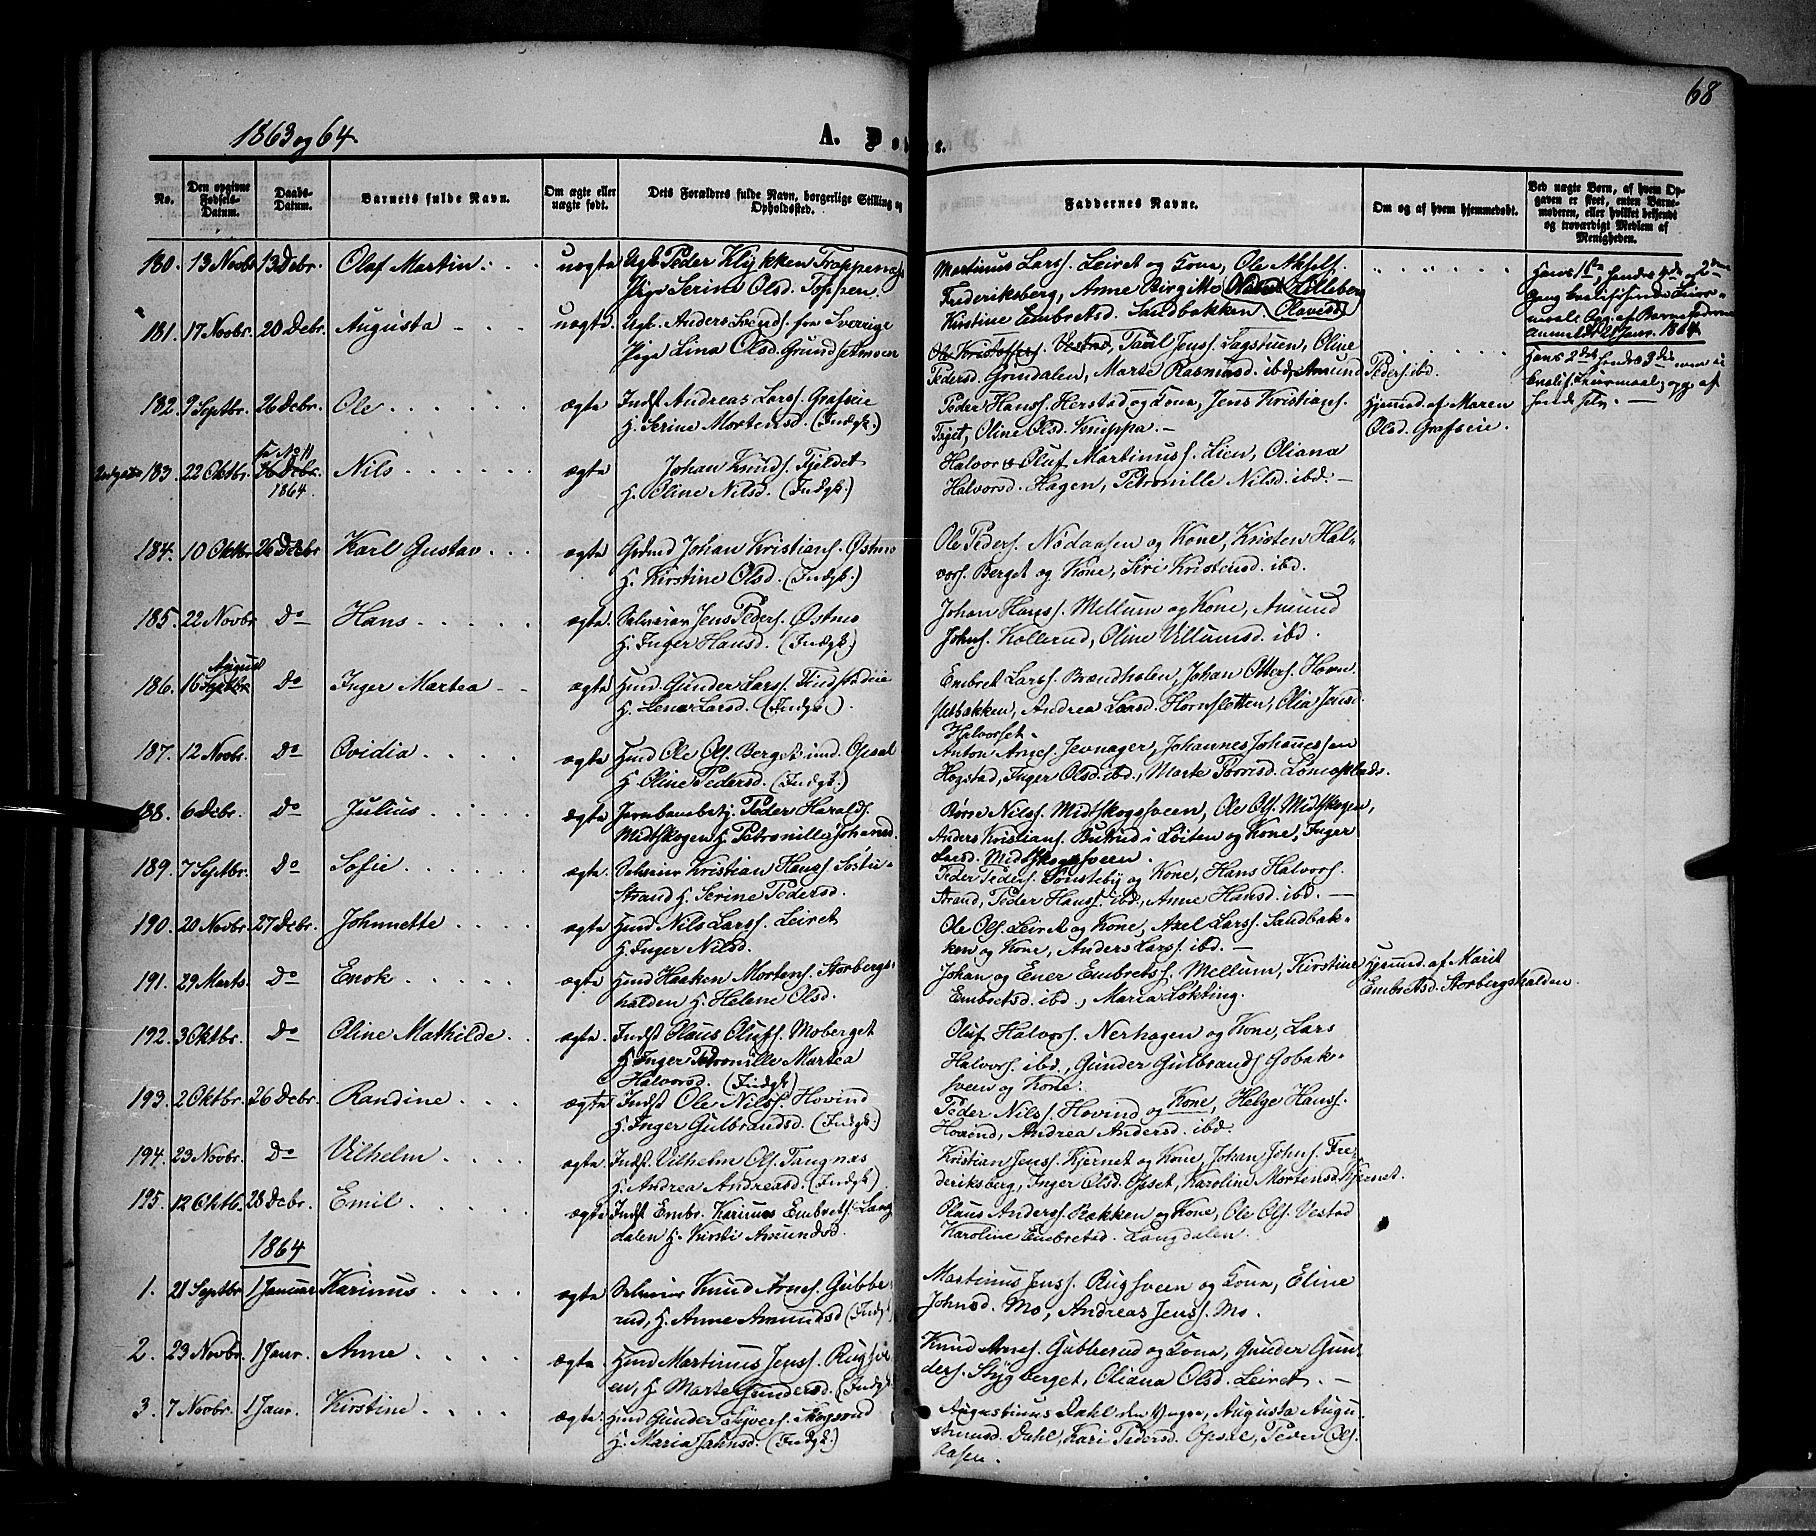 68
1863 og 64
A. Døbte.
No.
Den opgivne Fødsels-Datum.
Daabs-Datum.
Barnets fulde Navn.
Om ægte eller uægte født.
Dets Forældres fulde Navn, borgerlige Stilling og Opholdssted.
Faddernes Navne.
Om og af hvem hjemmedøbt.
Ved uægte Børn, af hvem Opgaven er skeet, enten Barnemoderen, eller hvilket bekjendt og troværdigt Medlem af Menigheden.
180. 13 Novbr. 13 Debr. Olaf Martin uægte Ugb. Peder Klykken Trøppenæs
Pige Serine Olsd. Toppen.
Martinus Larss. Leiret og Kone, Ole Aksels.
Frederiksberg, Anne Birgit Mo
Kirstine Embretsd. Sandbakken
181. 17 Novbr. 20 Debr. Augusta uægte Ugb. Anders Svends. fra Sverrige
Pige Lina Olsd. Grundsetmoen
Ole Kristoffers. Vestad, Paul Jenss. Lagstuen, Oline
Pedersd. Grindalen, Marte Rasmusd. ibd, Amund Peders. ibd.
182. 9 Septbr. 26 Debr. Ole ægte Indst Andreas Larss. Grafseie
H. Serine Mortensd. (Indgk.)
Peder Hanss. Herstad og Kone, Jens Kristians.
Tøjet, Oline Olsd. Knippa.
Hjemd. af Maren
Olsd. Grafseie.
183. 22 Oktbr. 26 Debr. Nils ægte Johan Knuds. Fjeldet
1864.
H. Oline Nilsd. (Indgk.)
Halvor & Oluf Martinuss. Lien, Oliana
Halvorsd. Hagen, Petronille Nilsd. ibd.
184. 10 Oktbr. 26 Debr. Karl Gustav ægte Grdmd Johan Kristians. Østmo
H. Kirstine Olsd. (Indgk.)
Ole Peders. Nødaasen og Kone, Kristen Hal-
vors. Berget og Kone, Siri Kristensd. ibd.
185. 22 Novbr. Do Hans ægte Selveier Jens Peders. Østmo
H. Inger Hansd. (Indgk.)
Johan Hanss. Mellum og Kone, Amund
Johns. Kollerud, Oline Villumsd. ibd.
August
186. 16 Septbr. Do Inger Martea ægte Hmd. Gunder Larss. Findstadeie
H. Lena Larsd. (Indgk.)
Embret Larss. Brændholen, Johan Otters. Horn-
sletbakken, Andrea Larsd. Hornsletten, Olia Jensd.
Halvorset.
187. 12 Novbr. Do Ovidia ægte Hmd Ole Ols. Berget und. Opsal
H. Oline Pedersd. (Indgk.)
Anton Arnes. Jevnager, Johannes Johannessen
Hogstad, Inger Olsd. ibd., Marte Torrisd. Lømosplads.
188. 6 Debr. Do Julius ægte Jernbanebetj. Peder Haralds.
Midtskogen H. Petronille Johansd.
Børre Nilss. Midtskogsveen, Ole Ols. Midtskogen,
Anders Kristians. Butrud i Løiten og Kone, Inger
Larsd. Midtskogsveen.
189. 7 Septbr. Do Sofie ægte Selveier Kristian Hanss. Sørstu-
Strand H. Serine Pedersd.
Peder Peders. Sønsteby og Kone, Hans Halvors.
Strand, Peder Hanss. ibd, Anne Hansd. ibd.
190. 20 Novbr. 27 Debr. Johnnette ægte Hmd Nils Larss. Leiret
H. Inger Nilsd.
Ole Ols. Leiret og Kone, Axel Larss. Sandbak-
ken og Kone, Anders Larss. ibd.
191. 29 Marts Do Enok ægte Hmd Haaken Mortens. Storbergs-
halden H. Helene Olsd.
Johan og Ener Embretss. Mellum, Kirstine
Embretsd. ibd., Maria Løkting.
Hjemd. af Marit
Embretsd. Storbergshalden.
192. 3 Oktbr. Do Oline Mathilde ægte Indst Olaus Olufs. Moberget
H. Inger Petronille Martea
Halvorsd. (Indgk)
Oluf Halvors. Nerhagen og Kone, Lars
Halvors. ibd., Gunder Gulbrands. Gobak-
sveen og Kone.
193. 2 Oktbr. 26 Debr. Randine ægte Indst Ole Nilss. Hovind
H. Inger Gulbrandsd. (Indgk.)
Peder Nilss. Hovind og Kone, Helge Hanss.
Hovind, Andrea Andersd. ibd.
194. 23 Novbr. Do Vilhelm ægte Indst. Vilhelm Ols. Tangnæs
H. Andrea Andreasd. (Indgk.)
Kristian Jenss. Kjernet og Kone, Johan Johns. Fre-
deriksberg, Inger Olsd. Opset, Karoline Mortensd. Kjernet.
195. 12 Oktb. 28 Debr. Emil ægte Indst Embr. Karinus Embrets. Lang-
dalen H. Kirsti Amundsd.
Olaus Anderss. Bakken og Kone, Ole Ols. Vestad
Karoline Embretsd. Langdalen.
1864
1. 21 Septbr 1 Januar Karinus ægte Selveier Knud Arnes. Gubbe-
rud, H. Anne Amundsd (Indgk)
Martinus Jenss. Rugsveen og Kone, Eline
Johnsd. Mo, Andreas Jenss. Mo.
2. 23 Novbr. 1 Janr. Anne ægte Hmd Martinus Jenss. Rugsve-
en, H. Marte Gundersd. (Indgk)
Knud Arnes. Gubberud og Kone, Gunder Gun-
ders. Stygberget, Oliana Olsd. Leiret.
3. 7 Novbr. 1 Janr. Kirstine ægte Hmd Gunder Syvers. Skogsrud
H. Maria Jahnsd. (Indgk.)
Augustinus Dahl den Yngre, Augusta Augu-
stinusd. Dahl, Kari Pedersd. Opsal, Peder Ols.
Aasen.